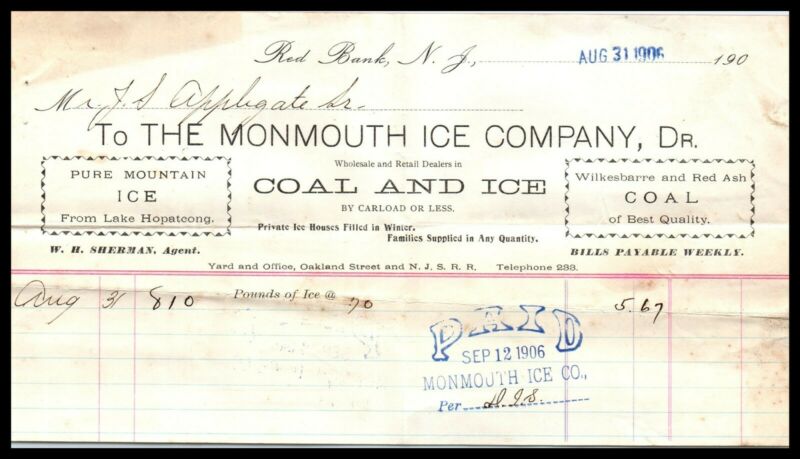 Red Bank, N. J., AUG 31 1906 190
Mr J. S. Applegate Sr.
To THE MONMOUTH ICE COMPANY, DR.
PURE MOUNTAIN
ICE
From Lake Hopatcong.
W. H. SHERMAN, Agent.
Wholesale and Retail Dealers in
COAL AND ICE
BY CARLOAD OR LESS.
Private Ice Houses Filled in Winter.
Families Supplied in Any Quantity.
Wilkesbarre and Red Ash
COAL
of Best Quality.
BILLS PAYABLE WEEKLY.
Yard and Office, Oakland Street and N. J. S. R. R. Telephone 233.
Aug 31 810 Pounds of Ice @ 70 5.67
PAID
SEP 12 1906
MONMOUTH ICE CO.,
Per